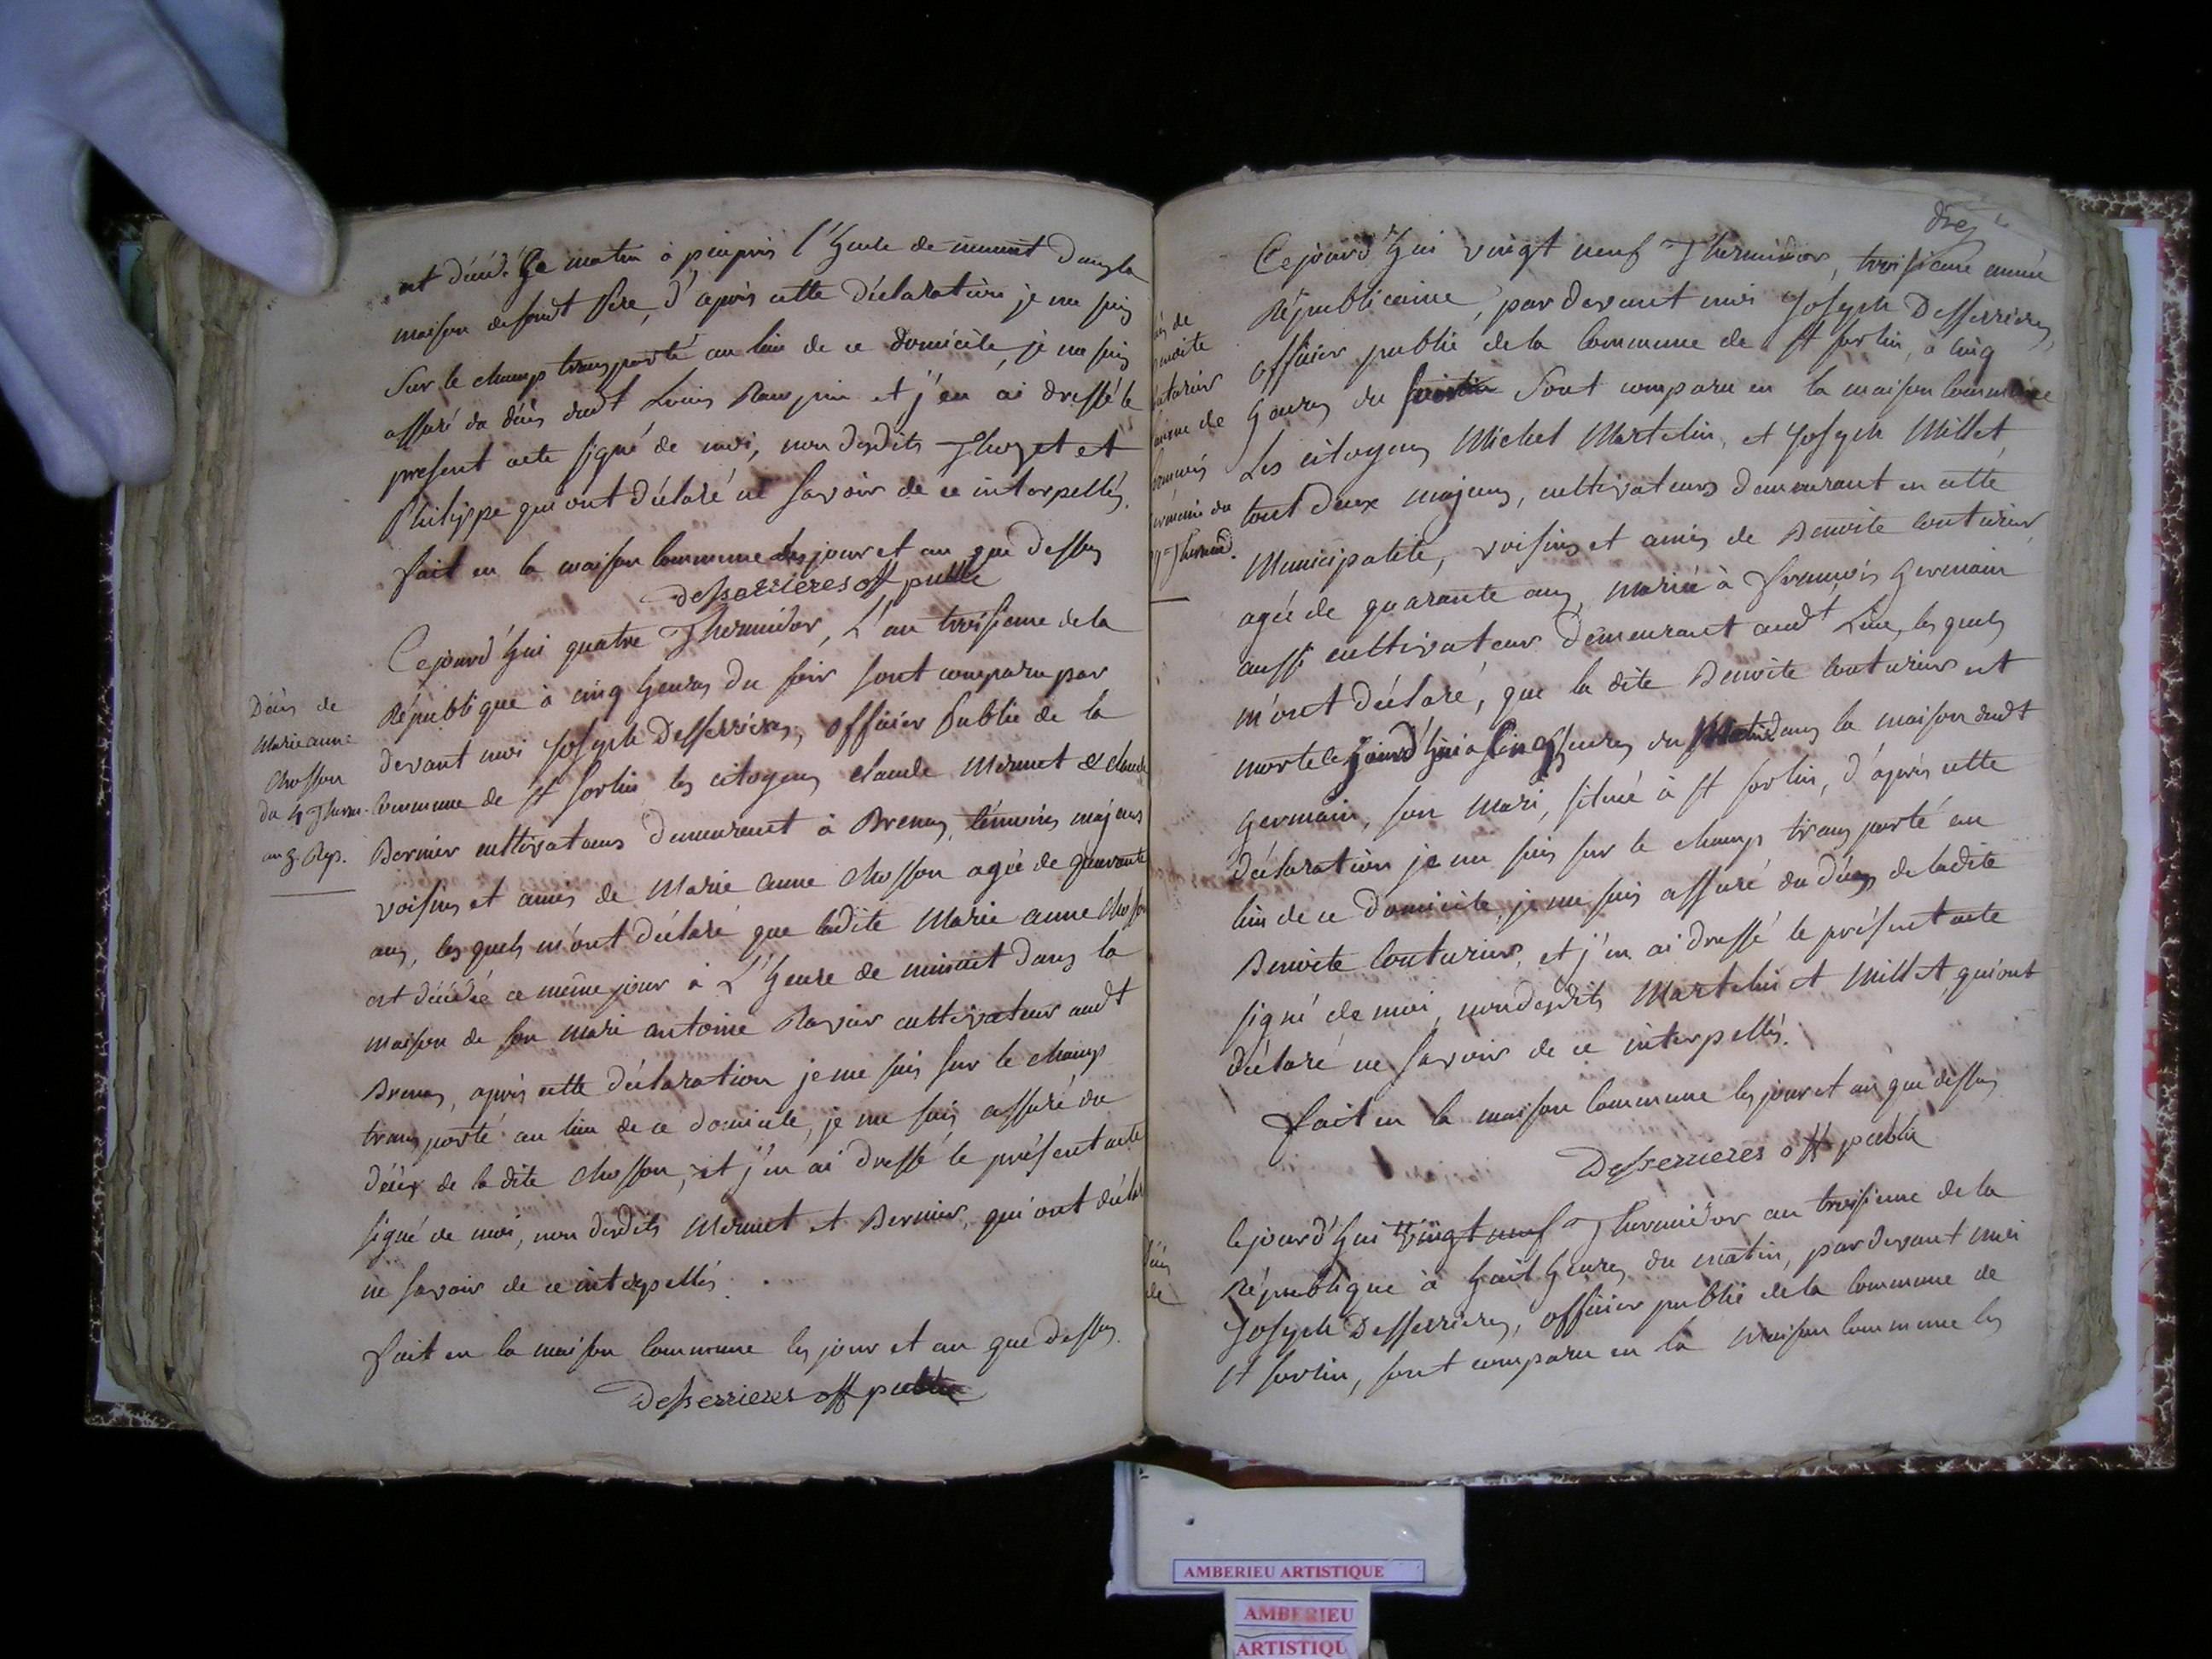 est décédé ce matin à peu près l'heure de minuit dans la
maison de son dt Père, d'après cette déclaration je me suis
sur le champ transporté au lieu de ce domicile, je me suis
assuré du décès dudt Louis et j'en ai dressé le
present acte signé de moi, non desdits Thozet et
Philippe qui ont déclaré ne savoir de ce interpellés.
fait en la maison commune les jour et an que dessus
Desserrieres off public
Décès de
Marie anne
Chosson
du 4 Therm.
an 3. Rep.
Cejourd'hui quatre Thermidor, L'an troisieme de la
République à cinq heures du soir sont comparu par
devant moi Joseph Desserrieres, officier Public de la
commune de St Sorlin les citoyens claude Mermet & claude
Bernier cultivateurs demeurant à Brenas, témoins majeurs
voisins et amis de Marie anne Chosson agée de quarante
ans, les quels m'ont déclaré que ladite Marie anne Chosson
est décédée ce même jour à L'heure de minuit dans la
maison de son mari antoine Ravier cultivateur audt
Brenas, après cette déclaration je me suis sur le champ
transporté au lieu de ce domicile, je me suis assuré du
décès de la dite Chosson, et j'en ai dressé le présent acte
signé de moi, non desdits Mermet et Bernier, qui ont déclaré
ne savoir de ce interpellés.
fait en la maison commune les jour et an que dessus.
Desserrieres off public
Cejourd'hui vingt neuf Thermidor, troisieme année
Républicaine, par devant moi Joseph Desserrieres,
officier public de la commune de St Sorlin, à cinq
heures du sont comparu en la maison commune
Les citoyens Michel Martelin, et Joseph Millet,
tout deux majeurs, cultivateurs demeurant en cette
Municipalité, voisins et amis de Benoite Couturier
agée de quarante ans, mariée à françois Germain
aussi cultivateur demeurant audt Lieu, les quels
m'ont déclaré, que la dite Benoite Couturier est
morte cejourd'hui a cinq heures du Matin dans la maison dudt
Germain, son Mari, située à St Sorlin, d'après cette
déclaration je me suis sur le champ transporté au
lieu de ce domicile, je me suis assuré du décès de ladite
Benoite Couturier, et j'en ai dressé le présent acte
signé de moi, non desdits Martelin et Millet, qui ont
déclaré ne savoir de ce interpellés.
fait en la maison commune les jour et an que dessus
Desserrieres off public
Décès
de
Cejourd'hui vingt neuf Thermidor an troisieme de la
République à huit heures du matin, par devant moi
Joseph Desserrieres, officier public de la commune de
St Sorlin, sont comparu en la maison commune les
AMBERIEU ARTISTIQUE
AMBERIEU
ARTISTIQU